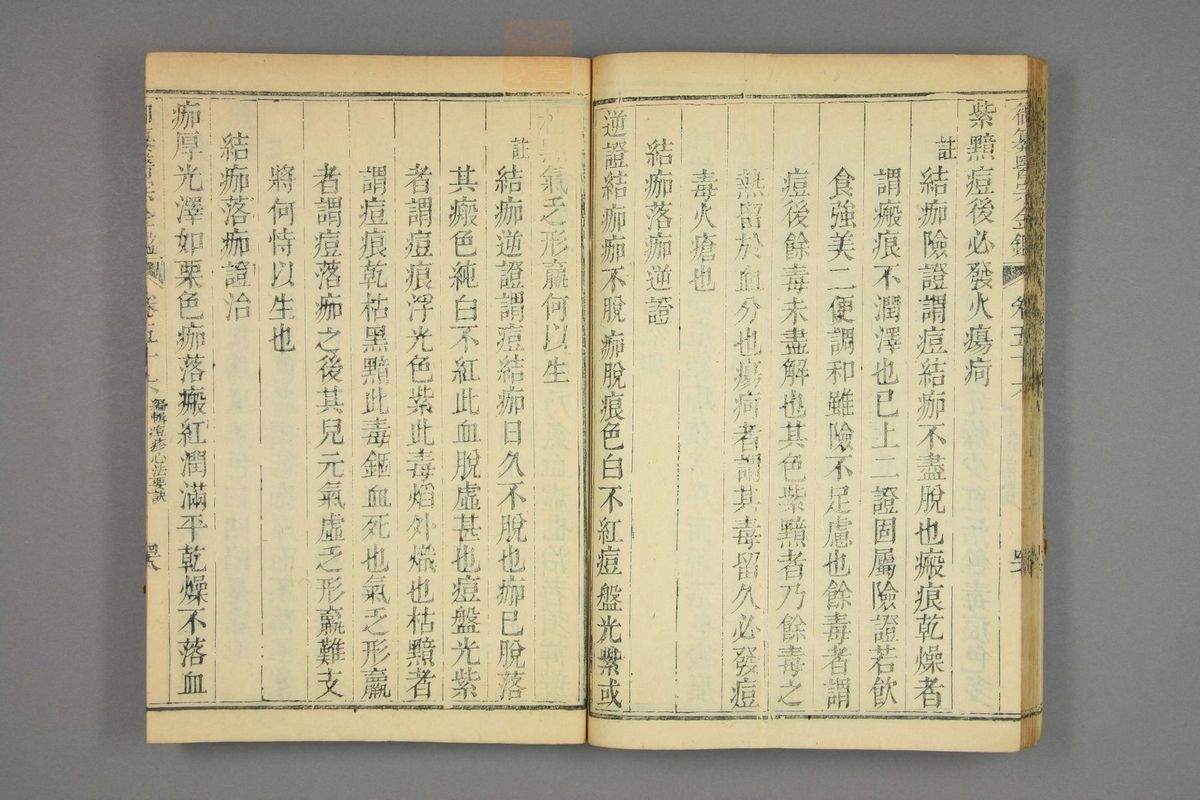 御纂醫宗金鑑 卷五十六
紫黯痘後必發火瘍疴
註 結痂險證謂痘結痂不盡脫也瘢痕乾燥者
謂瘢痕不潤澤也已上二證固屬險證若飲
食強美二便調和雖險不足慮也餘毒者謂
痘後餘毒未盡解也其色紫黯者乃餘毒之
熱留於血分也瘍疴者謂其毒留久必發痘
毒火瘡也
結痂落痂逆證
逆證結痂痂不脫痂脫痕色白不紅痘盤光紫或
黑氣乏形羸何以生
註 結痂逆證謂痘結痂日久不脫也痂已脫落
其瘢色純白不紅此血脫虛甚也痘盤光紫
者謂痘痕浮光色紫此毒焰外熾也枯黯者
謂痘痕乾枯黑黯此毒錮血死也氣乏形羸
者謂痘落痂之後其兒元氣虛乏形羸難支
將何恃以生也
結痂落痂證治
痂厚光澤如栗色痂落瘢紅潤滿平乾燥不落血
卷五十六 編輯痘疹心法要訣